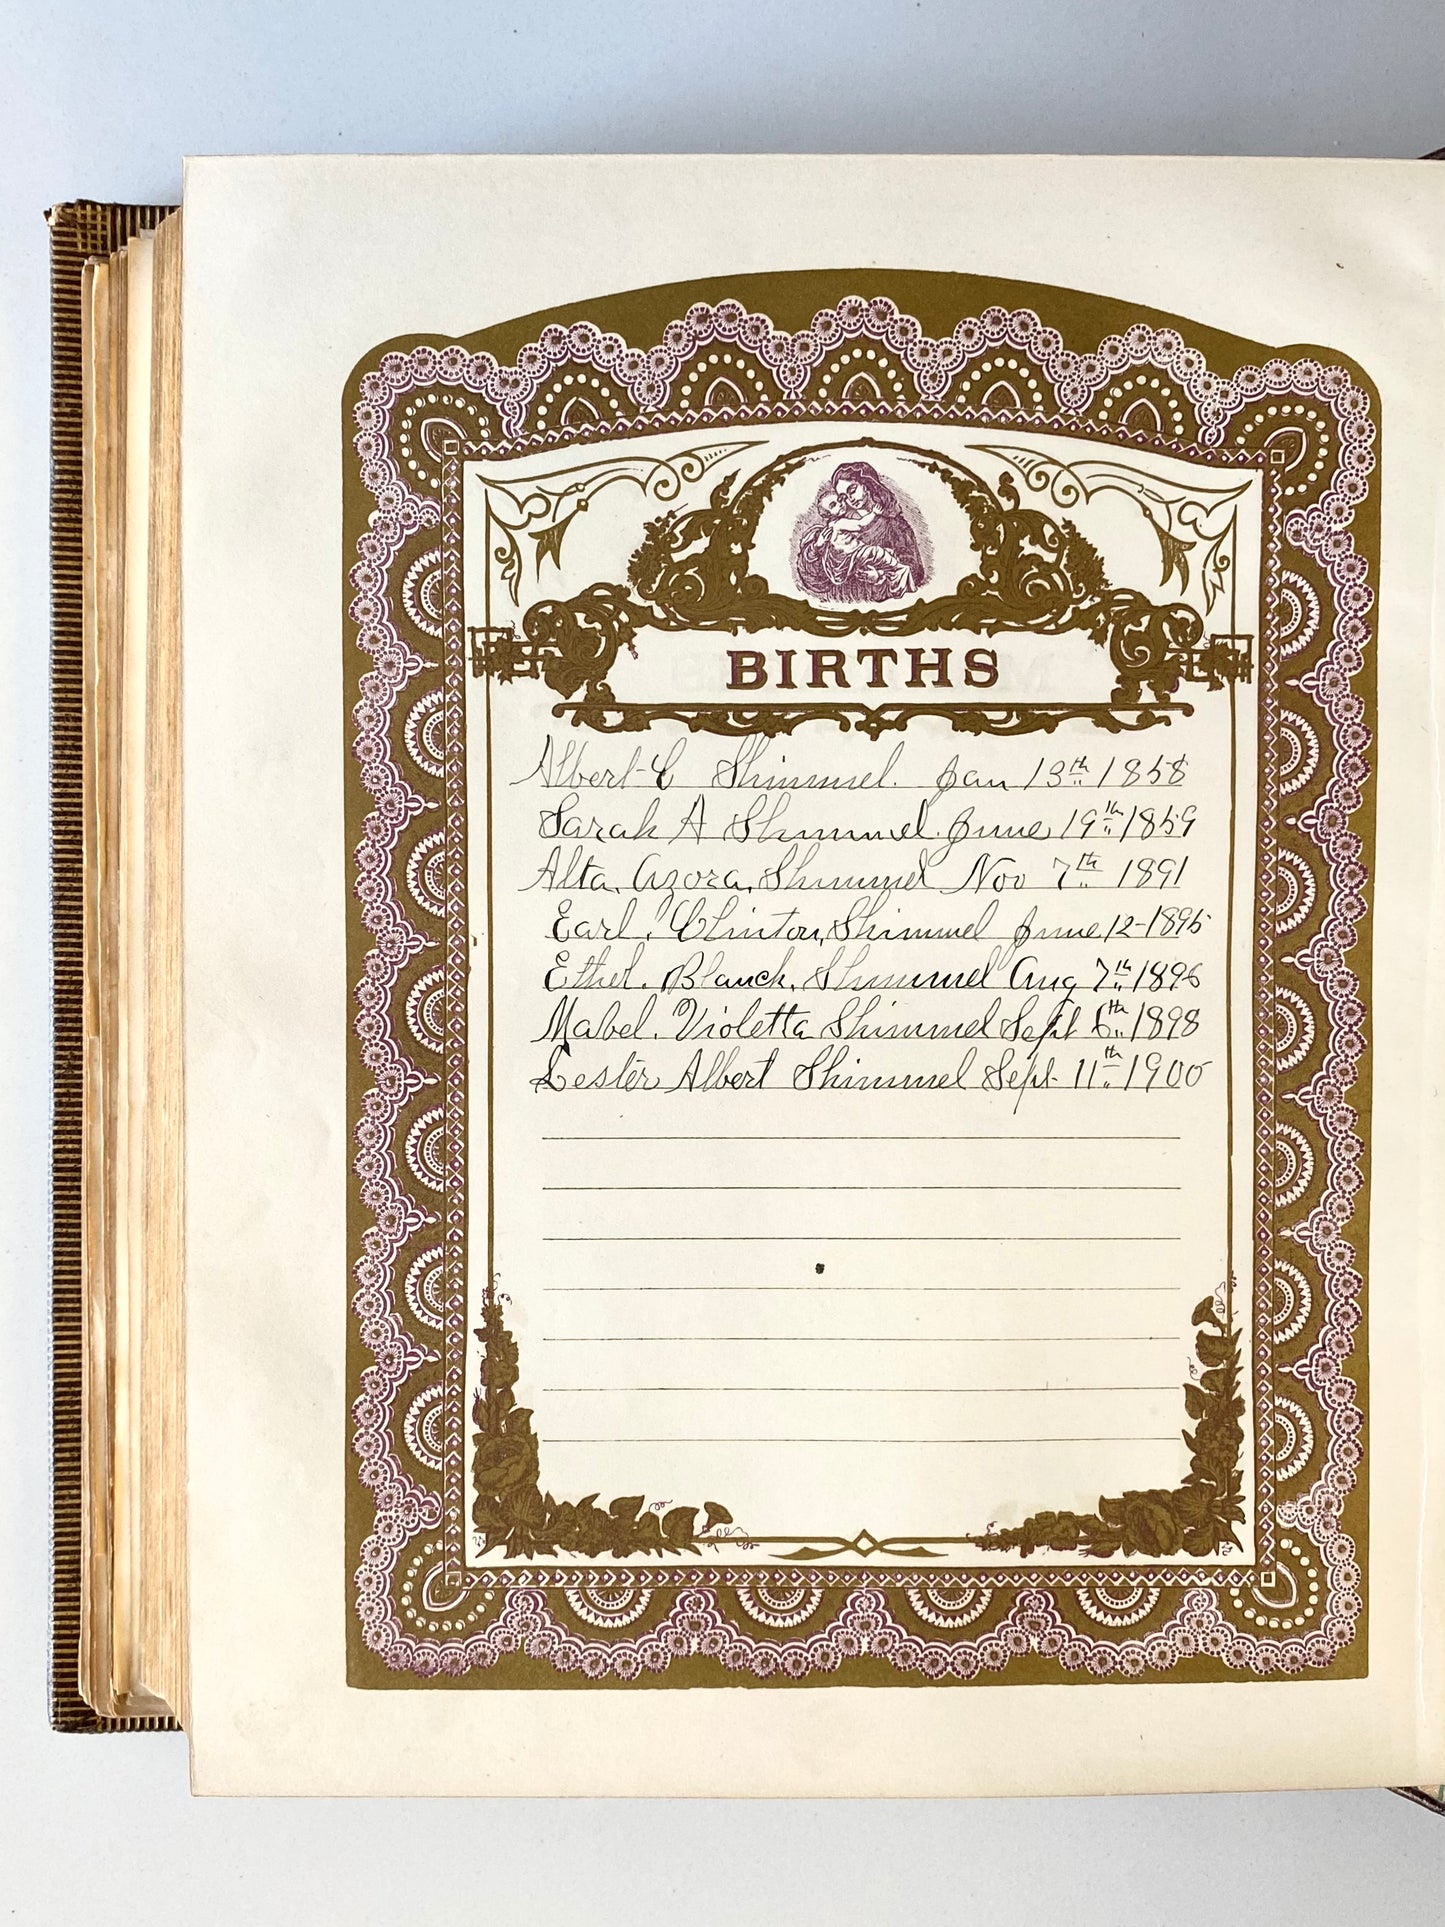 BIRTHS
Albert C Shimmel. Jan 13th 1858
Sarah A Shimmel. June 19th 1859
Alta, Azora, Shimmel Nov 7th 1891
Earl, Clinton, Shimmel June 12-1895
Ethel. Blanch, Shimmel Aug 7th 1896
Mabel. Violetta Shimmel Sept 6th 1898
Lester Albert Shimmel Sept 11th 1900